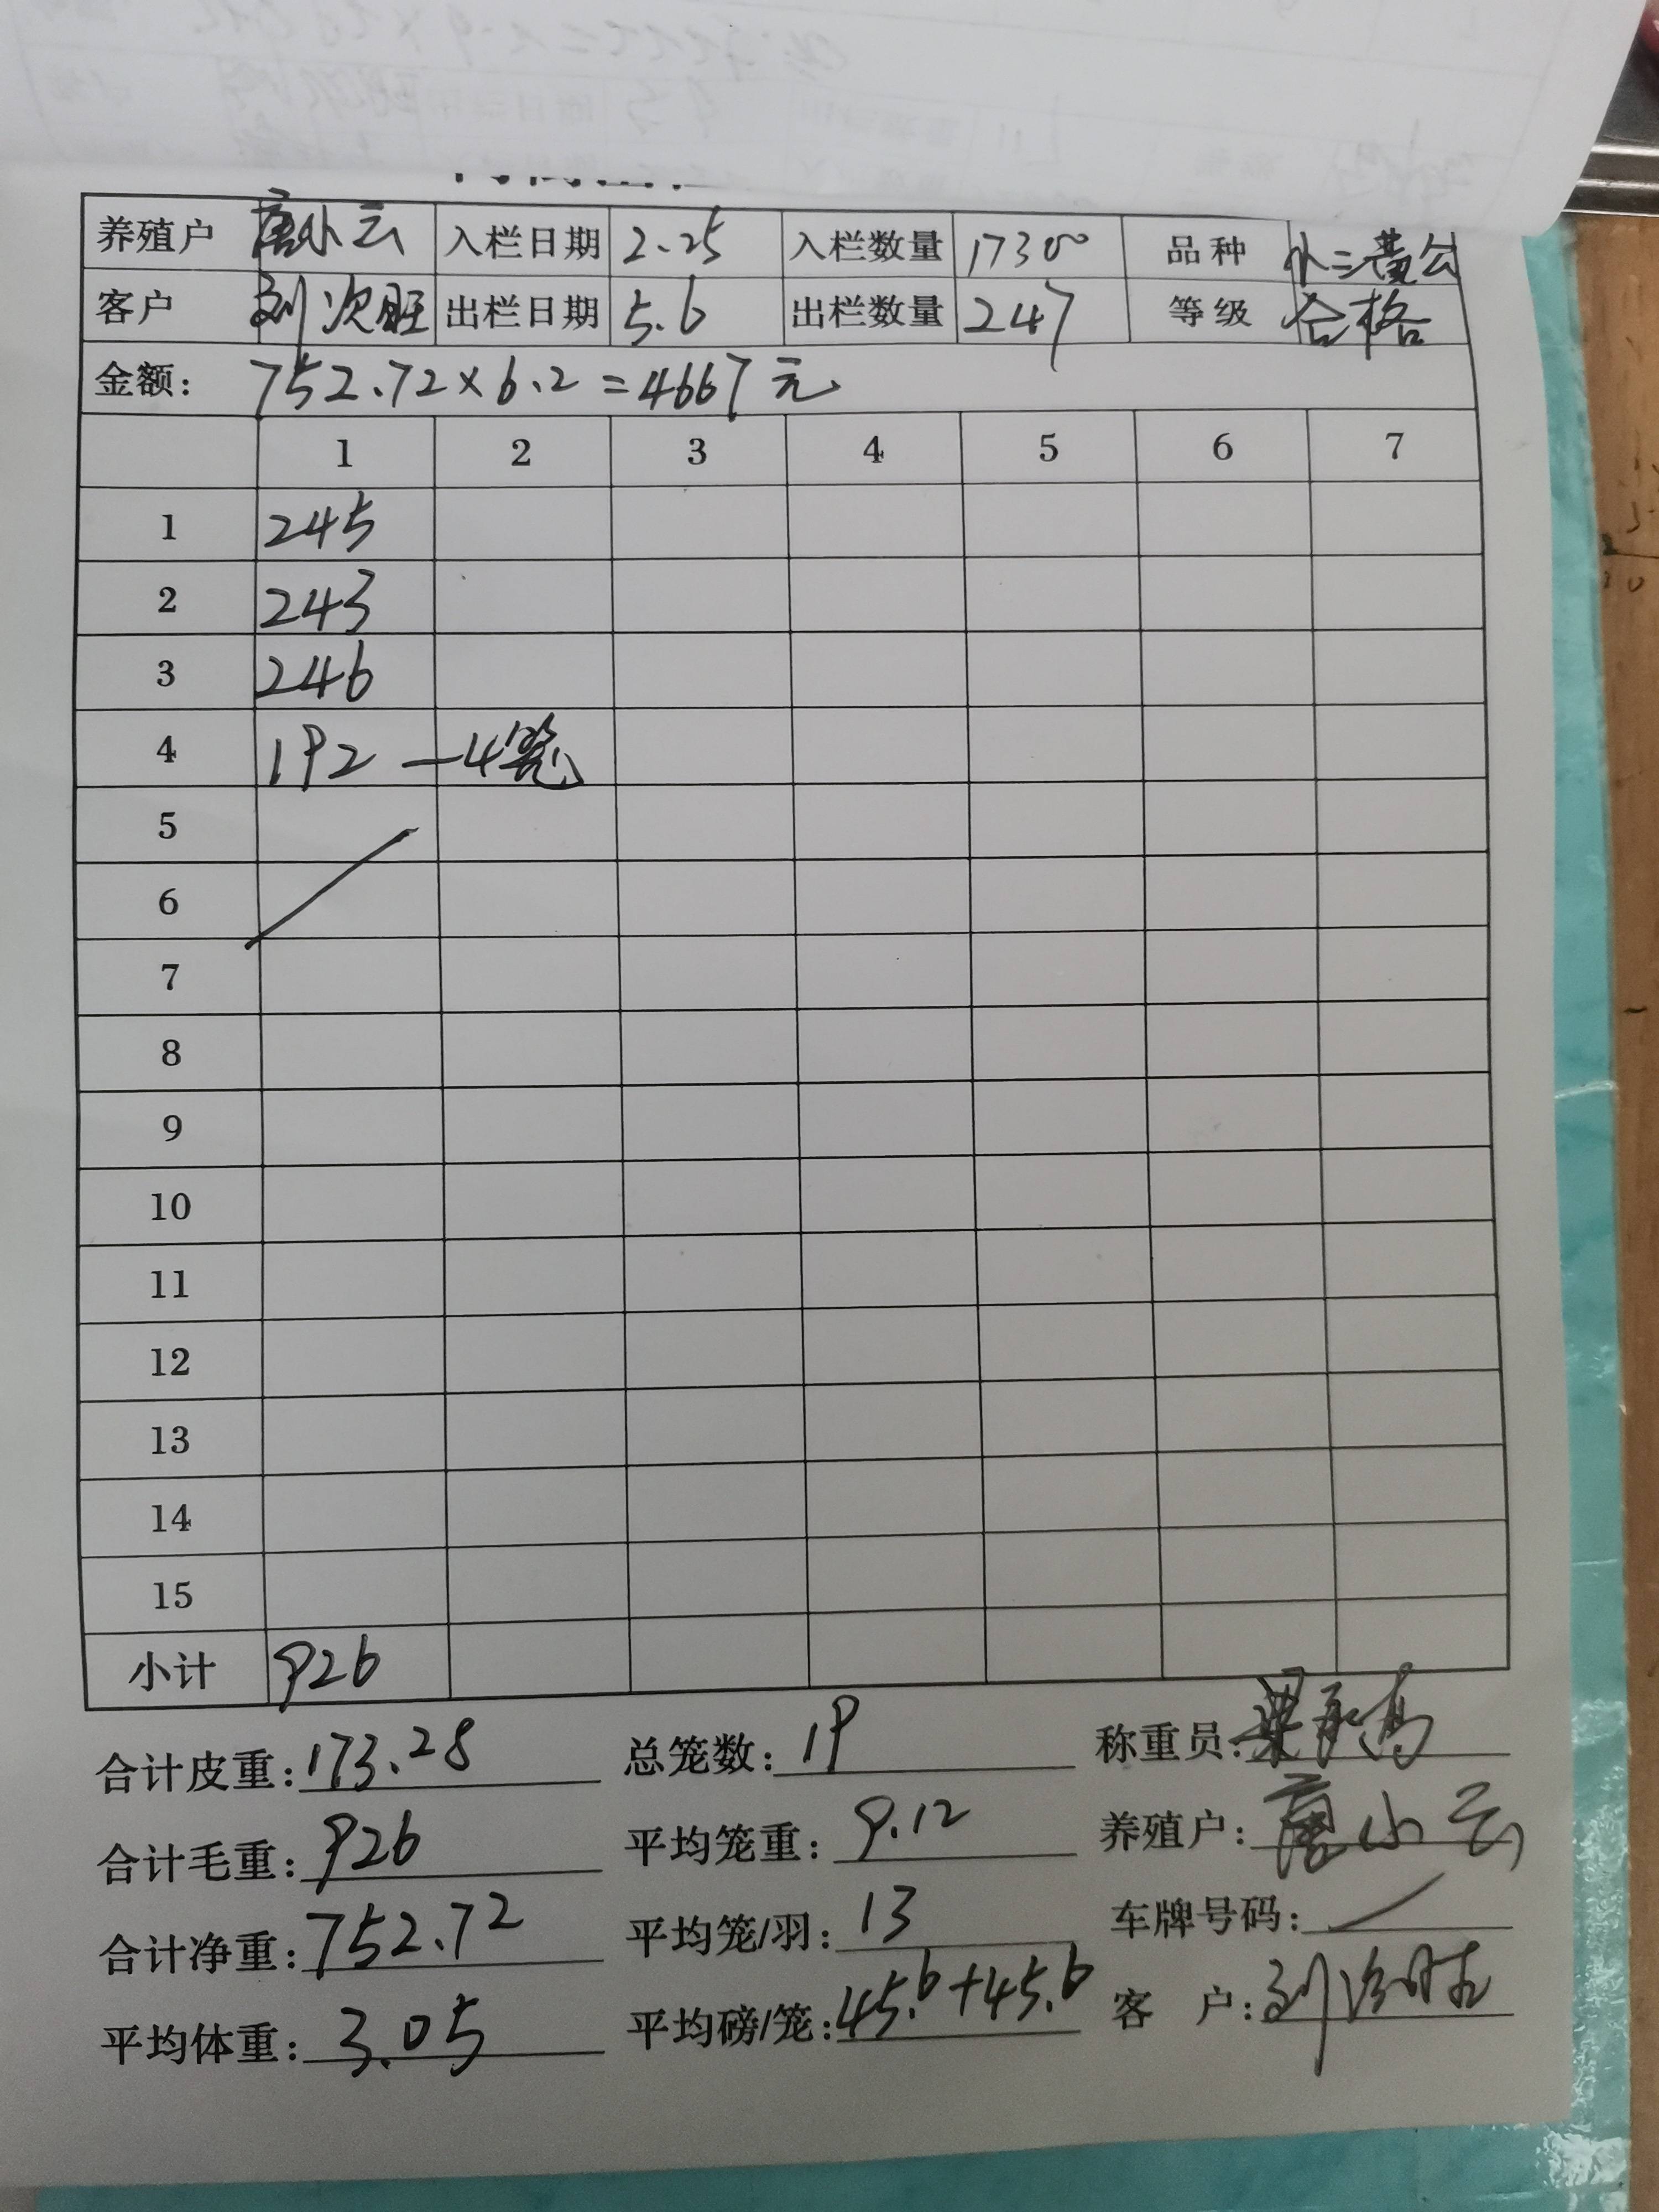 养殖户 唐小云 入栏日期 2.25 入栏数量 17300 品种 小三黄公
客户 刘次旺 出栏日期 5.6 出栏数量 247 等级 合格
金额: 752.72×6.2=4667元
1 2 3 4 5 6 7
1 245
2 243
3 246
4 192 —4笼
5
6
7
8
9
10
11
12
13
14
15
小计 926
合计皮重: 173.28 总笼数: 19 称重员:
合计毛重: 926 平均笼重: 9.12 养殖户: 唐小云
合计净重: 752.72 平均笼/羽: 13 车牌号码:
平均体重: 3.05 平均磅/笼: 45.6+45.6 客 户: 刘次旺